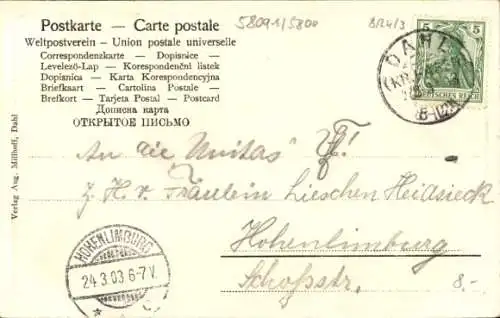 Postkarte — Carte postale
Weltpostverein – Union postale universelle
Correspondenzkarte – Dopisnice –
Levelező-Lap — Korespondenční listek
Dopisnica – Karta Korespondencyjna
Briefkaart – Cartolina Postale –
Brefkort – Tarjeta Postal – Postcard
Дописна карта
ОТКРЫТОЕ ПИСЬМО
5809-1/5800
5
5
DEUTSCHES REICH
DAHL
An die Unitas
z. H. v. Fräulein Lieschen Heidsieck
Hohenlimburg
Schloßstr.
8.-
HOHENLIMBURG
24.3.03.6-7V.
Verlag Aug. Millhoff, Dahl